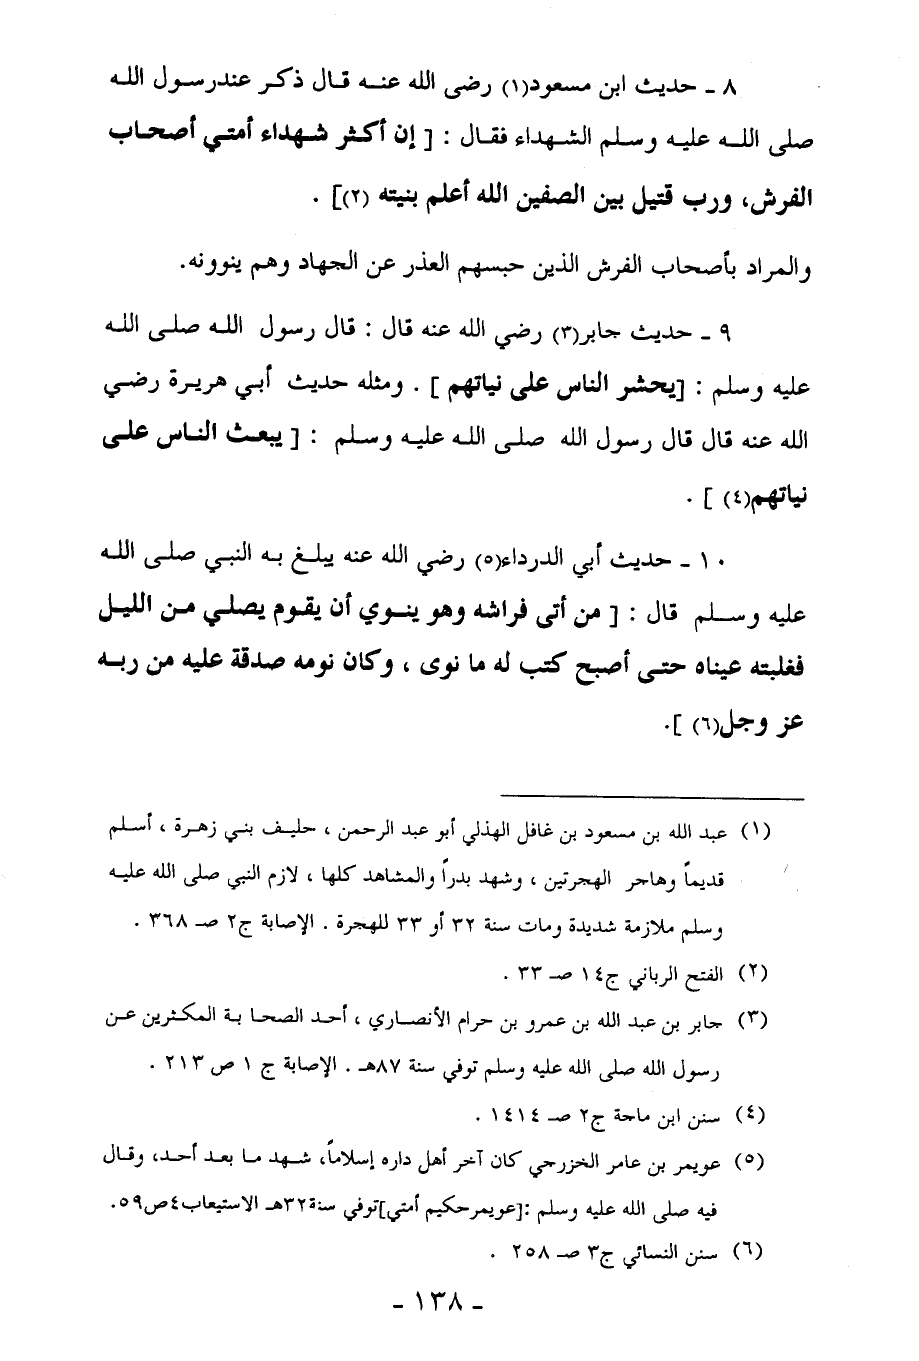 ٨ ـ حديث ابن مسعود(١) رضى الله عنه قال ذكر عندرسول الله
صلى الله عليه وسلم الشهداء فقال : [ إن أكثر شهداء أمتي أصحاب
الفرش، ورب قتيل بين الصفين الله أعلم بنيته (٢)] .
والمراد بأصحاب الفرش الذين حبسهم العذر عن الجهاد وهم ينوونه.
٩ ـ حديث جابر(٣) رضي الله عنه قال : قال رسول الله صلى الله
عليه وسلم : [يحشر الناس على نياتهم ] . ومثله حديث أبي هريرة رضي
الله عنه قال قال رسول الله صلى الله عليه وسلم : [ يبعث الناس على
نياتهم(٤) ] .
١٠ ـ حديث أبي الدرداء(٥) رضي الله عنه يبلغ به النبي صلى الله
عليه وسلم قال : [ من أتى فراشه وهو ينوي أن يقوم يصلي من الليل
فغلبته عيناه حتى أصبح كتب له ما نوى ، وكان نومه صدقة عليه من ربه
عز وجل(٦) ].
(١) عبد الله بن مسعود بن غافل الهذلي أبو عبد الرحمن ، حليف بني زهرة ، أسلم
قديماً وهاجر الهجرتين ، وشهد بدراً والمشاهد كلها ، لازم النبي صلى الله عليه
وسلم ملازمة شديدة ومات سنة ٣٢ أو ٣٣ للهجرة . الإصابة ج٢ صـ ٣٦٨ .
(٢) الفتح الرباني ج١٤ صـ ٣٣ .
(٣) جابر بن عبد الله بن عمرو بن حرام الأنصاري ، أحد الصحابة المكثرين عن
رسول الله صلى الله عليه وسلم توفي سنة ٨٧هـ . الإصابة ج ١ ص ٢١٣ .
(٤) سنن ابن ماجة ج٢ صـ ١٤١٤ .
(٥) عويمر بن عامر الخزرجي كان آخر أهل داره إسلاماً، شهد ما بعد أحد، وقال
فيه صلى الله عليه وسلم :[عويمرحكيم أمتي]توفي سنة٣٢هـ الاستيعاب٤ص٥٩.
(٦) سنن النسائي ج٣ صـ ٢٥٨ .
- ١٣٨ -